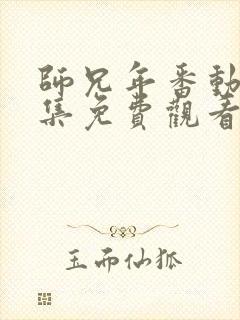 師兄年番動
集免費觀看
玉而仙狐